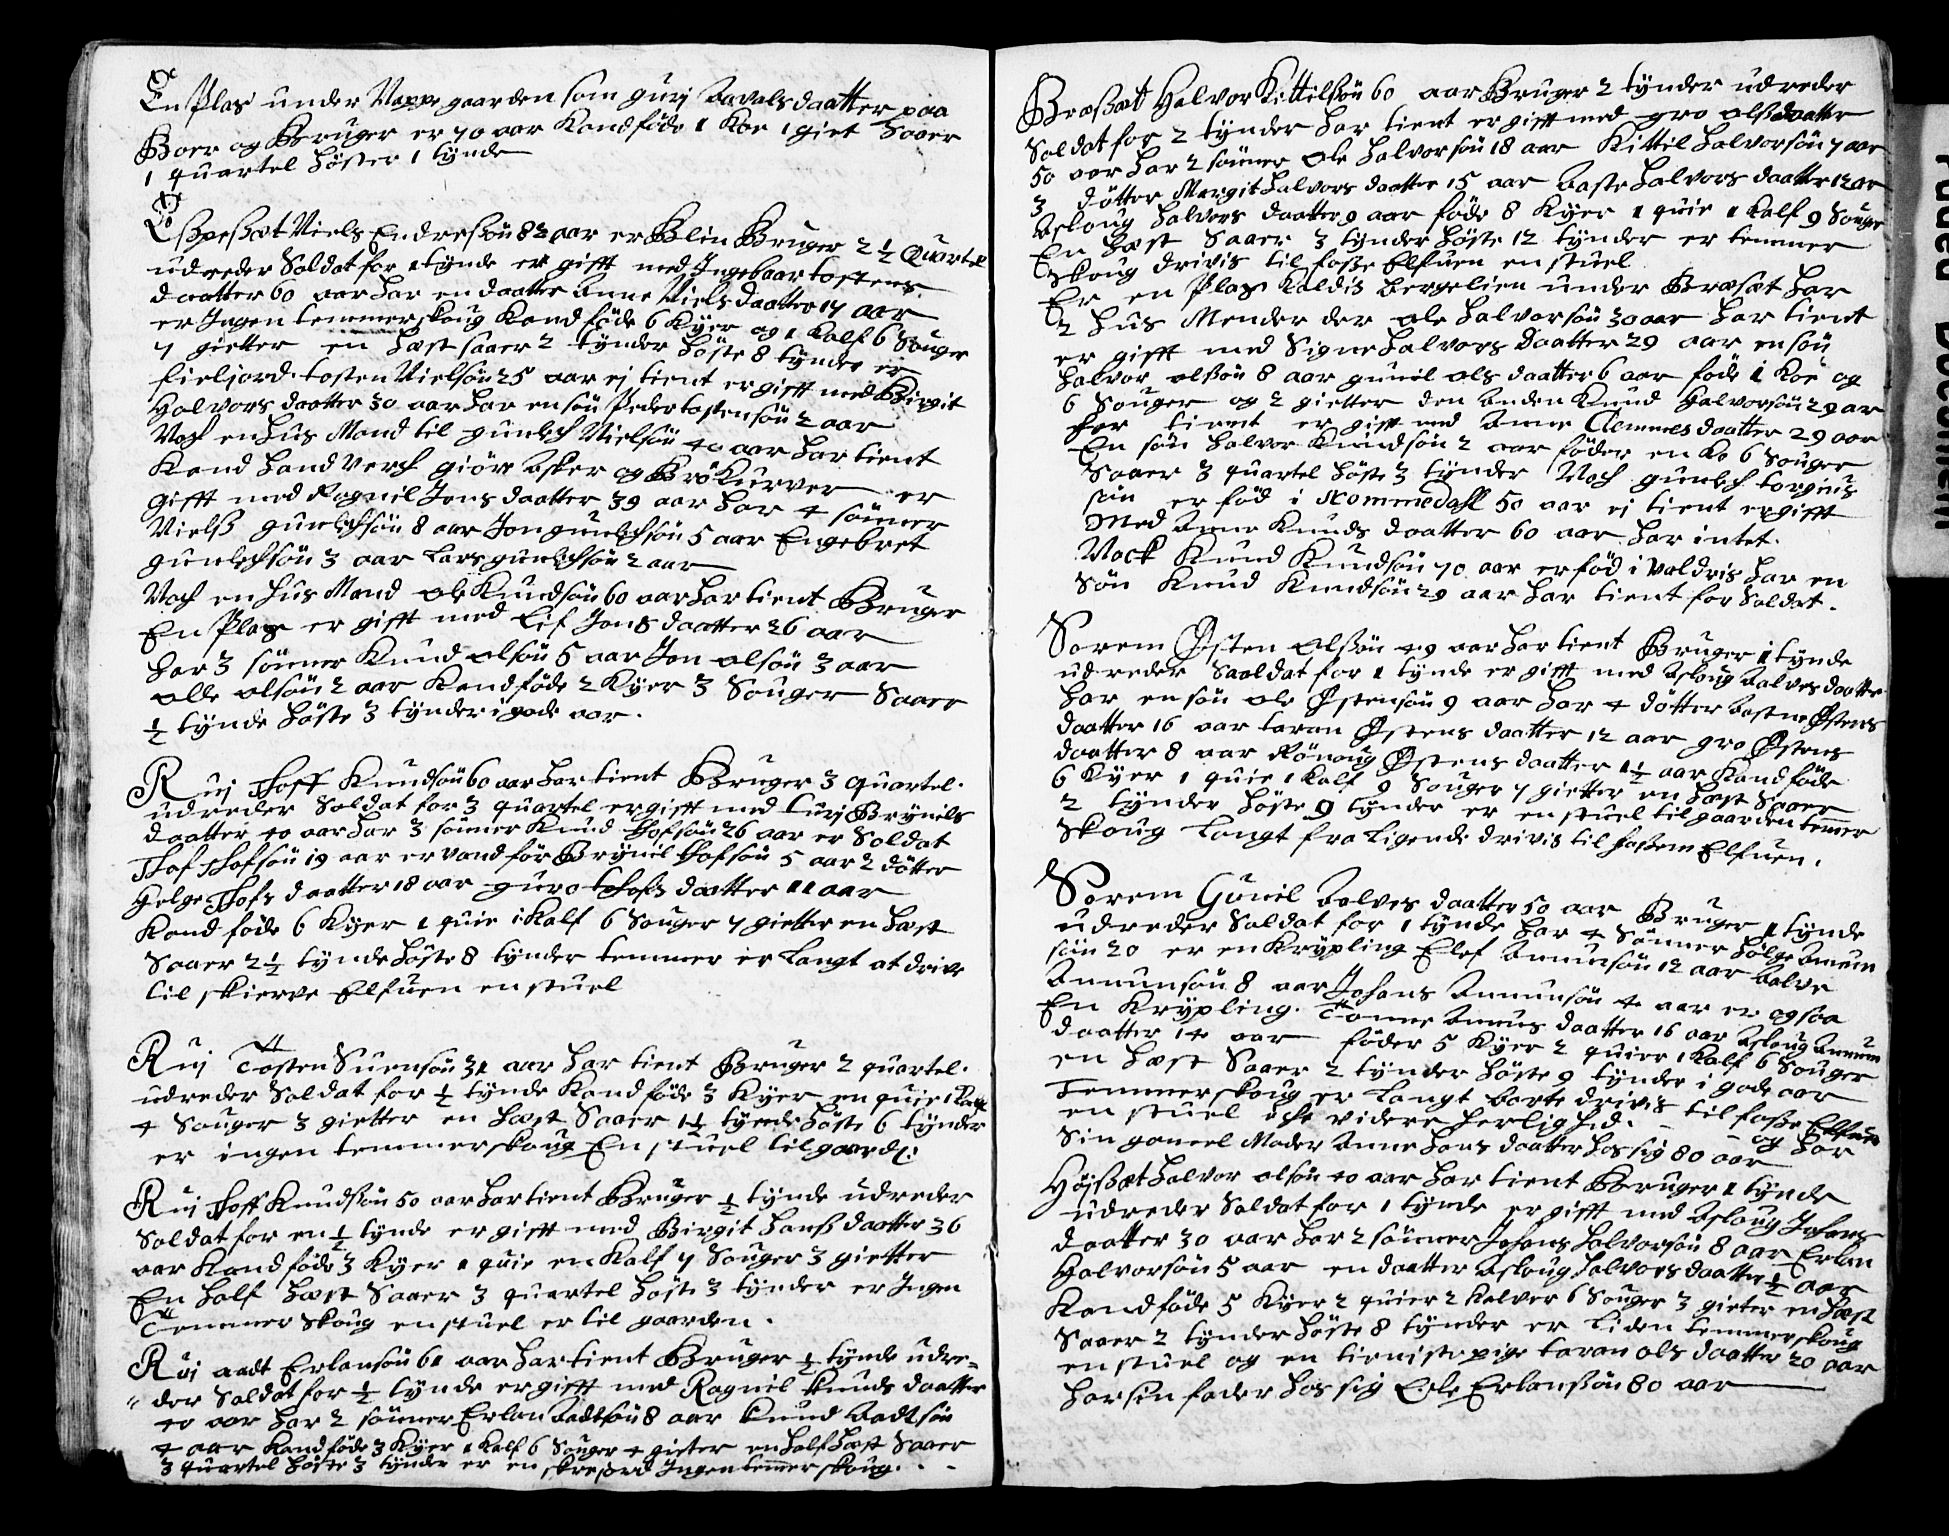 En Plas under Nappegaarden som gurj Aavals daatter paa
Boer og Bruger er 70 aar Kand føde 1 Koe 1 giet Saaer
1 quartel høster 1 tynde
Espeßæt Niels Endresøn 82 aar er Blin Bruger 2 1/2 Quartel
udreder Soldat for 1 tynde er gifft med Ingebaar tostens
daatter 60 aar har en daatter Anne Niels daatter 17 aar
er Ingen temmerskoug Kand føde 6 Kÿer og 1 Kalf 6 Souger
7 gietter en hæst saaer 2 tynder høste 8 tynder er
fieljord. tosten Nielsøn 25 aar ej tient er gifft med Birgit
Halvors daatter 30 aar har en søn Peder tostensøn 2 aar
Noch en hus Mand til gunlech Nielsøn 40 aar har tient
Kand handverch giøre Asker og BrøKurver er
Gifft med Ragnil Jons daatter 39 aar har 4 sønner
Nielß gunlechsøn 8 aar Jon gunlechsøn 5 aar Engebret
gunlechsøn 3 aar Lars gunlechsøn 2 aar
Noch en hus Mand ole Knudsøn 60 aar har tient Bruger
En Plas er gifft med Lif Jons daatter 26 aar
har 3 sønner Knud olsøn 5 aar Jon olsøn 3 aar
olle olsøn 2 aar Kand føde 2 Kÿer 3 Souger Saaer
1/2 tynde høste 3 tynder i gode aar.
Ruj Thoff Knudsøn 60 aar har tient Bruger 3 quartel.
udreder Soldat for 3 quartel er gifft med turj Brÿnils
daatter 40 aar har 3 sønner Knud Thofsøn 26 aar er Soldat
Thof Thofsøn 19 aar er vandfør Brÿnil Thofsøn 5 aar 2 døtter
Helge Thofs daatter 18 aar guro Thofs daatter 11 aar
Kand føde 6 Kÿer 1 quie 1 Kalf 6 Souger 7 gietter en hæst
Saaer 2 1/2 tynde høste 8 tynder temmer er Langt at drive
til skierve Elfuen en stuel
Ruj Tosten Suensøn 31 aar har tient Bruger 2 quartel.
udreder Soldat for 1/2 tynde Kand føde 3 Kÿer en quie 1 Kalf
4 Souger 3 gietter en hæst Saaer 1 1/2 tynde høste 6 tynder
er ingen temmerskoug En stuel til gaarden
Ruj Thoff Knudsøn 50 aar har tient Bruger 1/2 tynde udreder
Soldat for en 1/2 tynde er gifft med Birgit hanß daatter 36
aar Kand føde 3 Kÿer 1 quie en Kalf 7 Souger 3 gietter
En half hæst Saaer 3 quartel høste 3 tynder er Ingen
Temmer Skoug en stuel er til gaarden.
Ruj aadt Erlansøn 61 aar har tient Bruger 1/2 tynde udre=
" der Soldat for 1/2 tynde er gifft med Ragnil Knuds daatter
40 aar har 2 sønner Erlan Aadtsøn 8 aar Knud Aadtsøn
4 aar Kand føde 3 Kÿer 1 Kalf 6 Souger 4 gieter en half hæst Saaer
3 quartel høste 3 tynde er en skresjord Ingen temmer skoug.
Bræßæt Halvor Kittilsøn 60 aar Bruger 2 tynder udreder
Soldat for 2 tynder har tient er gifft med gro olsdaatter
50 aar har 2 sønner ole halvorsøn 18 aar Kittil halvorsøn 7 aar
3 døtter Margit halvors daatter 15 aar Aaste halvors daatter 12 ar
Asloug halvors daatter 9 aar føde 8 Kÿer 1 quie 1 kalf 9 Souger
En hæst Saaer 3 tynder høste 12 tynder er temmer
Skoug drivis til foße Elfuen en stuel
Er en Plas Kaldis bergelien under Bræsæt har
2 hus Mender der ole halvorsøn 30 aar har tient
er gifft med Signe halvors daatter 29 aar en søn
halvor olßøn 8 aar gunil ols daatter 6 aar føde 1 Koe og
6 Souger og 2 gietter den Anden Knud halvorsøn 29 ar
har tient er gifft med Anne Clemmes daatter 29 aar
En søn halvor Knudsøn 2 aar føder en Ko 6 Souger
Saaer 3 quartel høste 3 tynder Noch gunlech torgius
søn er fød i Nommedahl 50 aar ej tient er gifft
Med Anne Knuds daatter 60 aar har intet.
Nock Knud Knudsøn 70 aar er fød i Valdris har en
Søn Knud Knudsøn 29 aar har tient for Soldat.
Sorem Østen olßøn 49 aar har tient Bruger 1 tynde
udreder Saaldat for 1 tynde er gifft med Asloug Aalves daatter
har en søn ole Østensøn 9 aar har 4 døtter Aastne Østens
daatter 16 aar taran Østens daatter 12 aar gro Østens
daatter 8 aar Rønoug Østens daatter 1 1/2 aar Kand føde
6 Kÿer 1 quie 1 Kalf 9 Souger 7 gietter en hæst Saaer
2 tynder høste 9 tynder er en stuel til gaarden temmer
Skoug Langt fra Ligende drivis til foßem Elfuen.
Sorem Gunil Aalves daatter 50 aar Bruger 1 tynde
udreder Soldat for 1 tynde har 4 Sønner hølge Amun
søn 20 er en Krÿpling Elef Amunsøn 12 aar Aalve
Amunsøn 8 aar Johans Amunsøn 4 aar er ogsaa
En Krÿpling. Tonne Amuns daatter 16 aar Asloug Amun
daatter 14 aar føder 5 Kÿer 2 quier 1 Kalf 6 Souger
en hæst Saaer 2 tynder høste 9 tynder i gode aar
Temmerskoug er Langt borte drivis til foße Elfuen
en stuel iche videre herlighed. - - og har
Sin gameel Moder Anne hans daatter hos sig 80 aar
Høißæt halvor olsøn 40 aar har tient Bruger 1 tynde
udreder Soldat for 1 tynde er gifft med Asloug Johans
daatter 30 aar har 2 sønner Johans halvorsøn 8 aar Erlan
Halvorsøn 5 aar en daatter Asloug halvors daatter 1/2 aar
Kand føde 5 Kÿer 2 quier 2 Kalver 6 Souger 3 gieter en hæst
Saaer 2 tynder høste 8 tynder er Liden temmerskoug
en stuel og en tieniste pige taran ols daatter 20 aar
har sin fader hos sig Ole Erlanßøn 80 aar